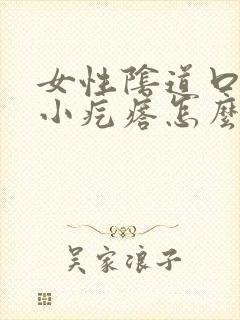 女性陰道口
小疙瘩怎麼
吴家浪子